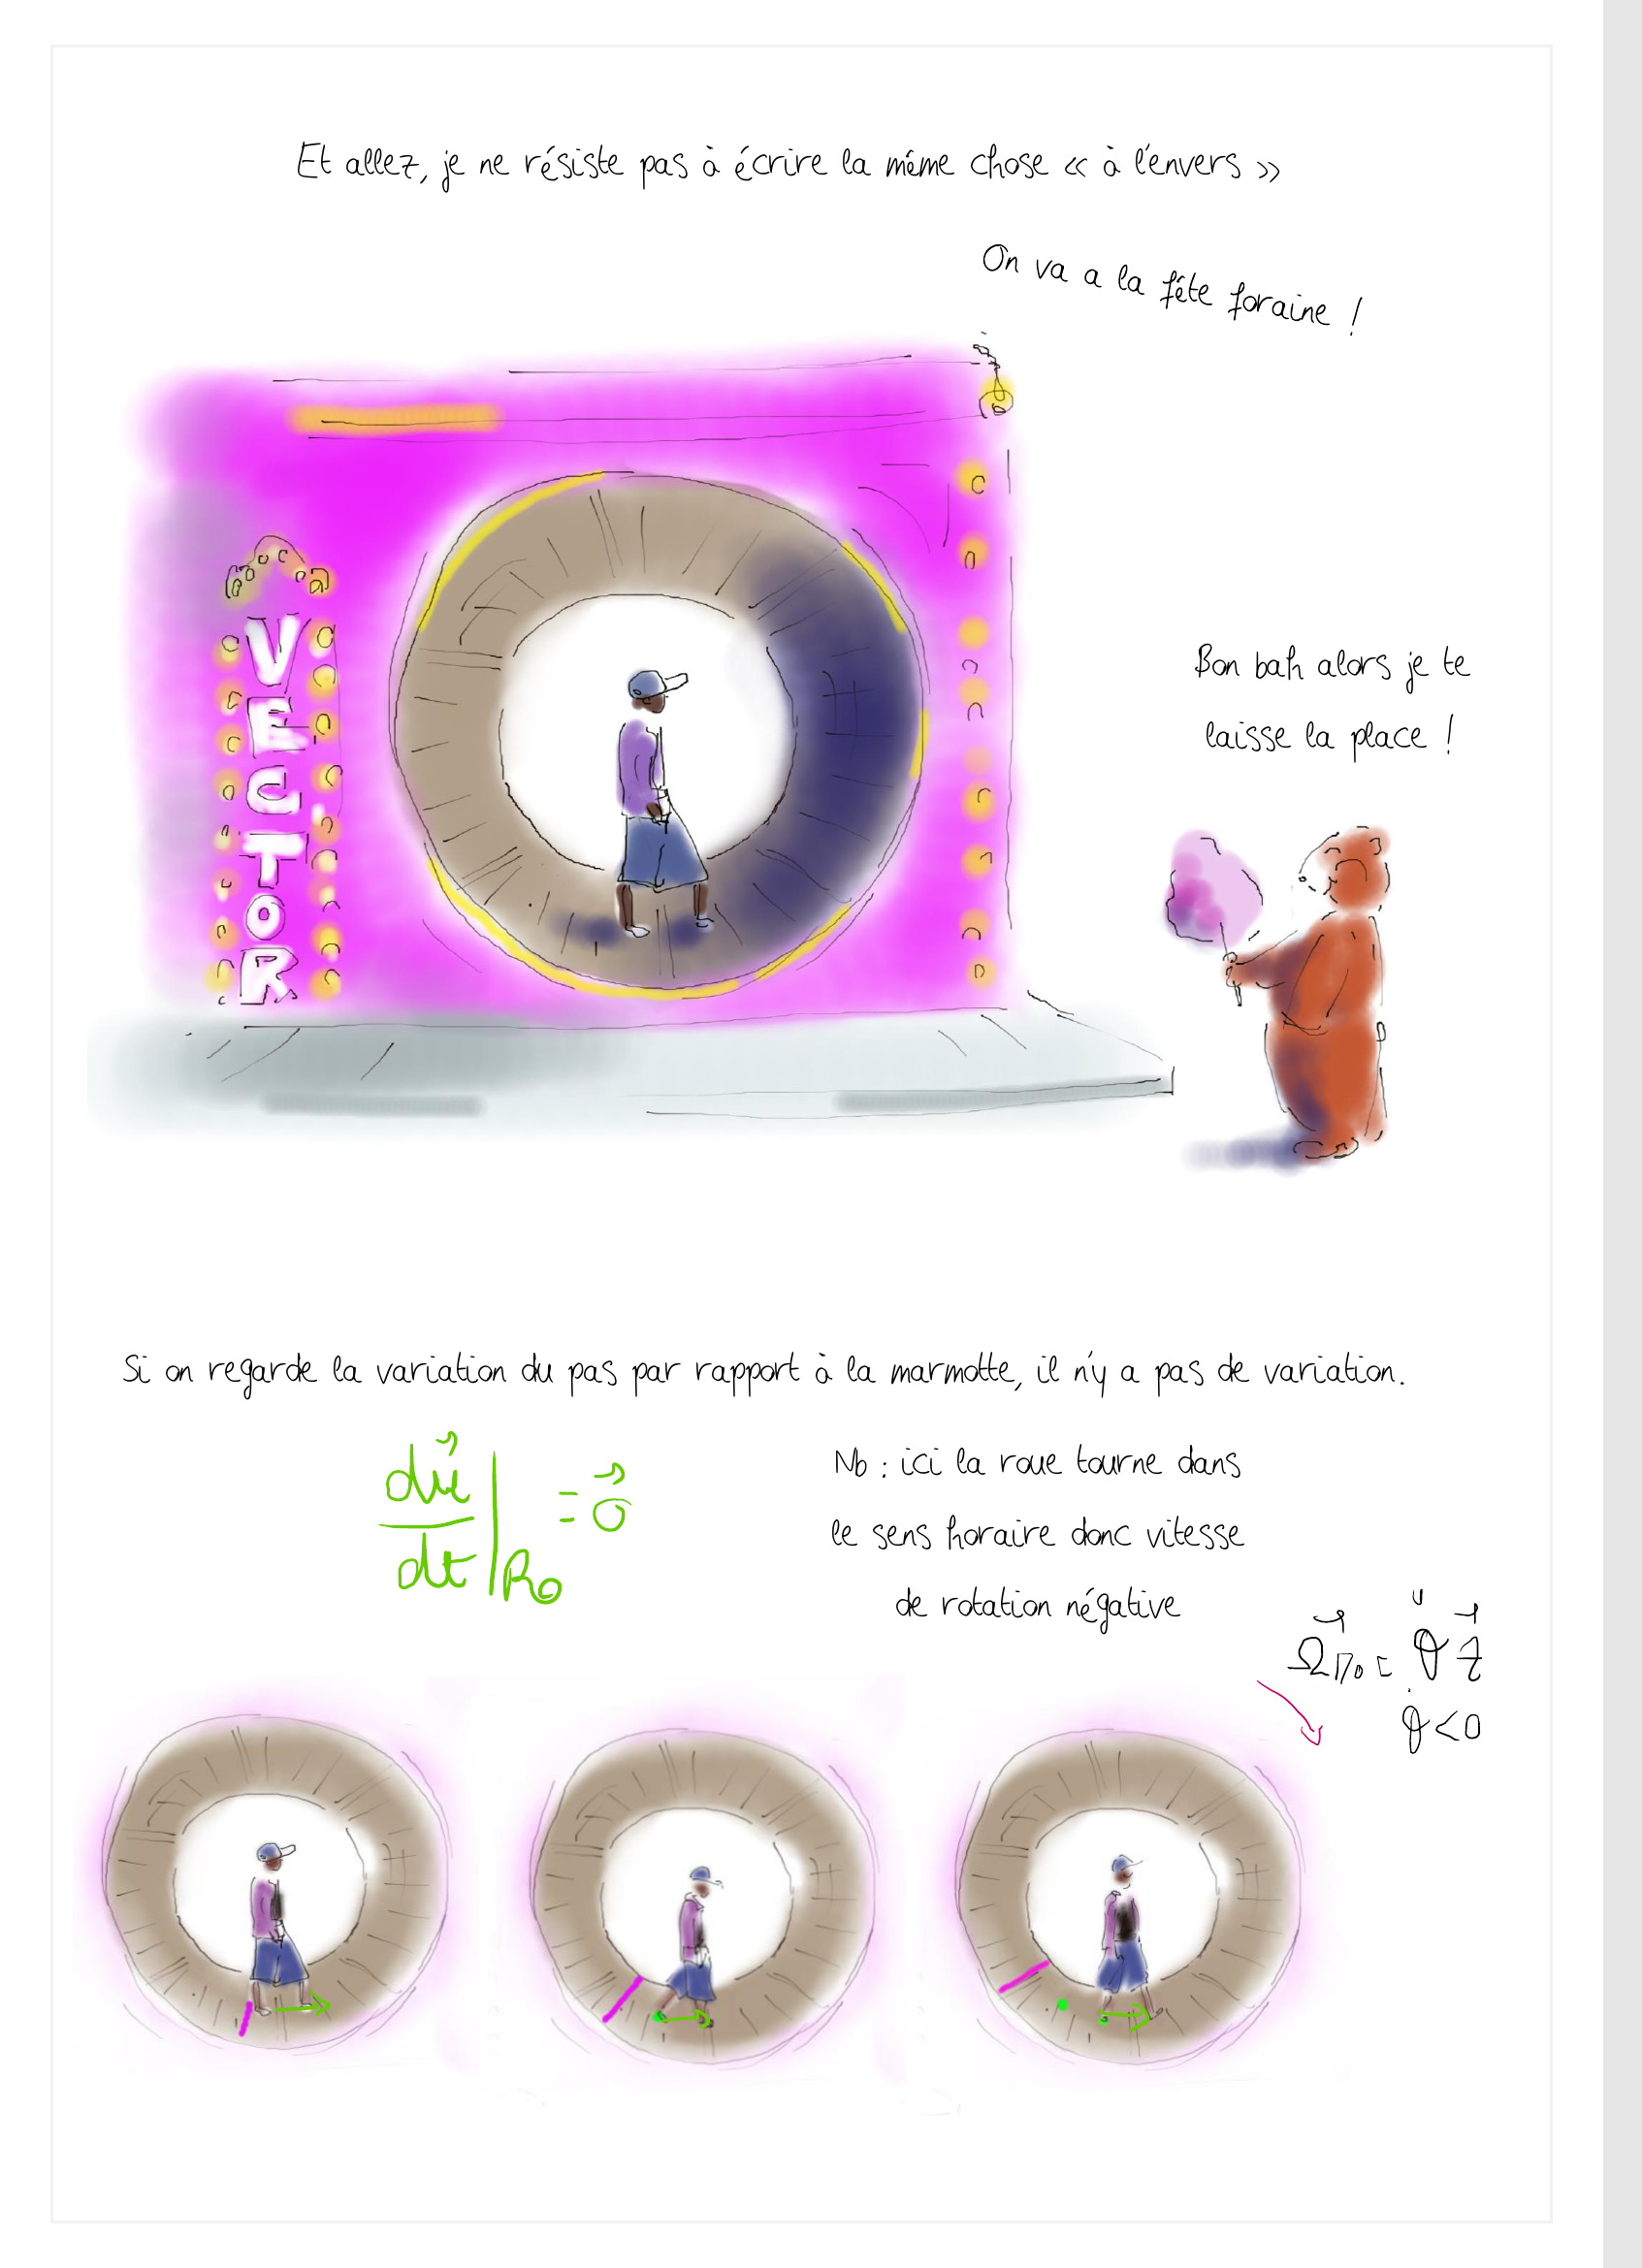 Et allez, je ne résiste pas à écrire la même chose « à l'envers »
On va a la fête foraine !
VECTOR
Bon bah alors je te
laisse la place !
Si on regarde la variation du pas par rapport à la marmotte, il n'y a pas de variation.
du⃗/dt|R0 = 0⃗
Nb : ici la roue tourne dans
le sens horaire donc vitesse
de rotation négative
θ̇<0